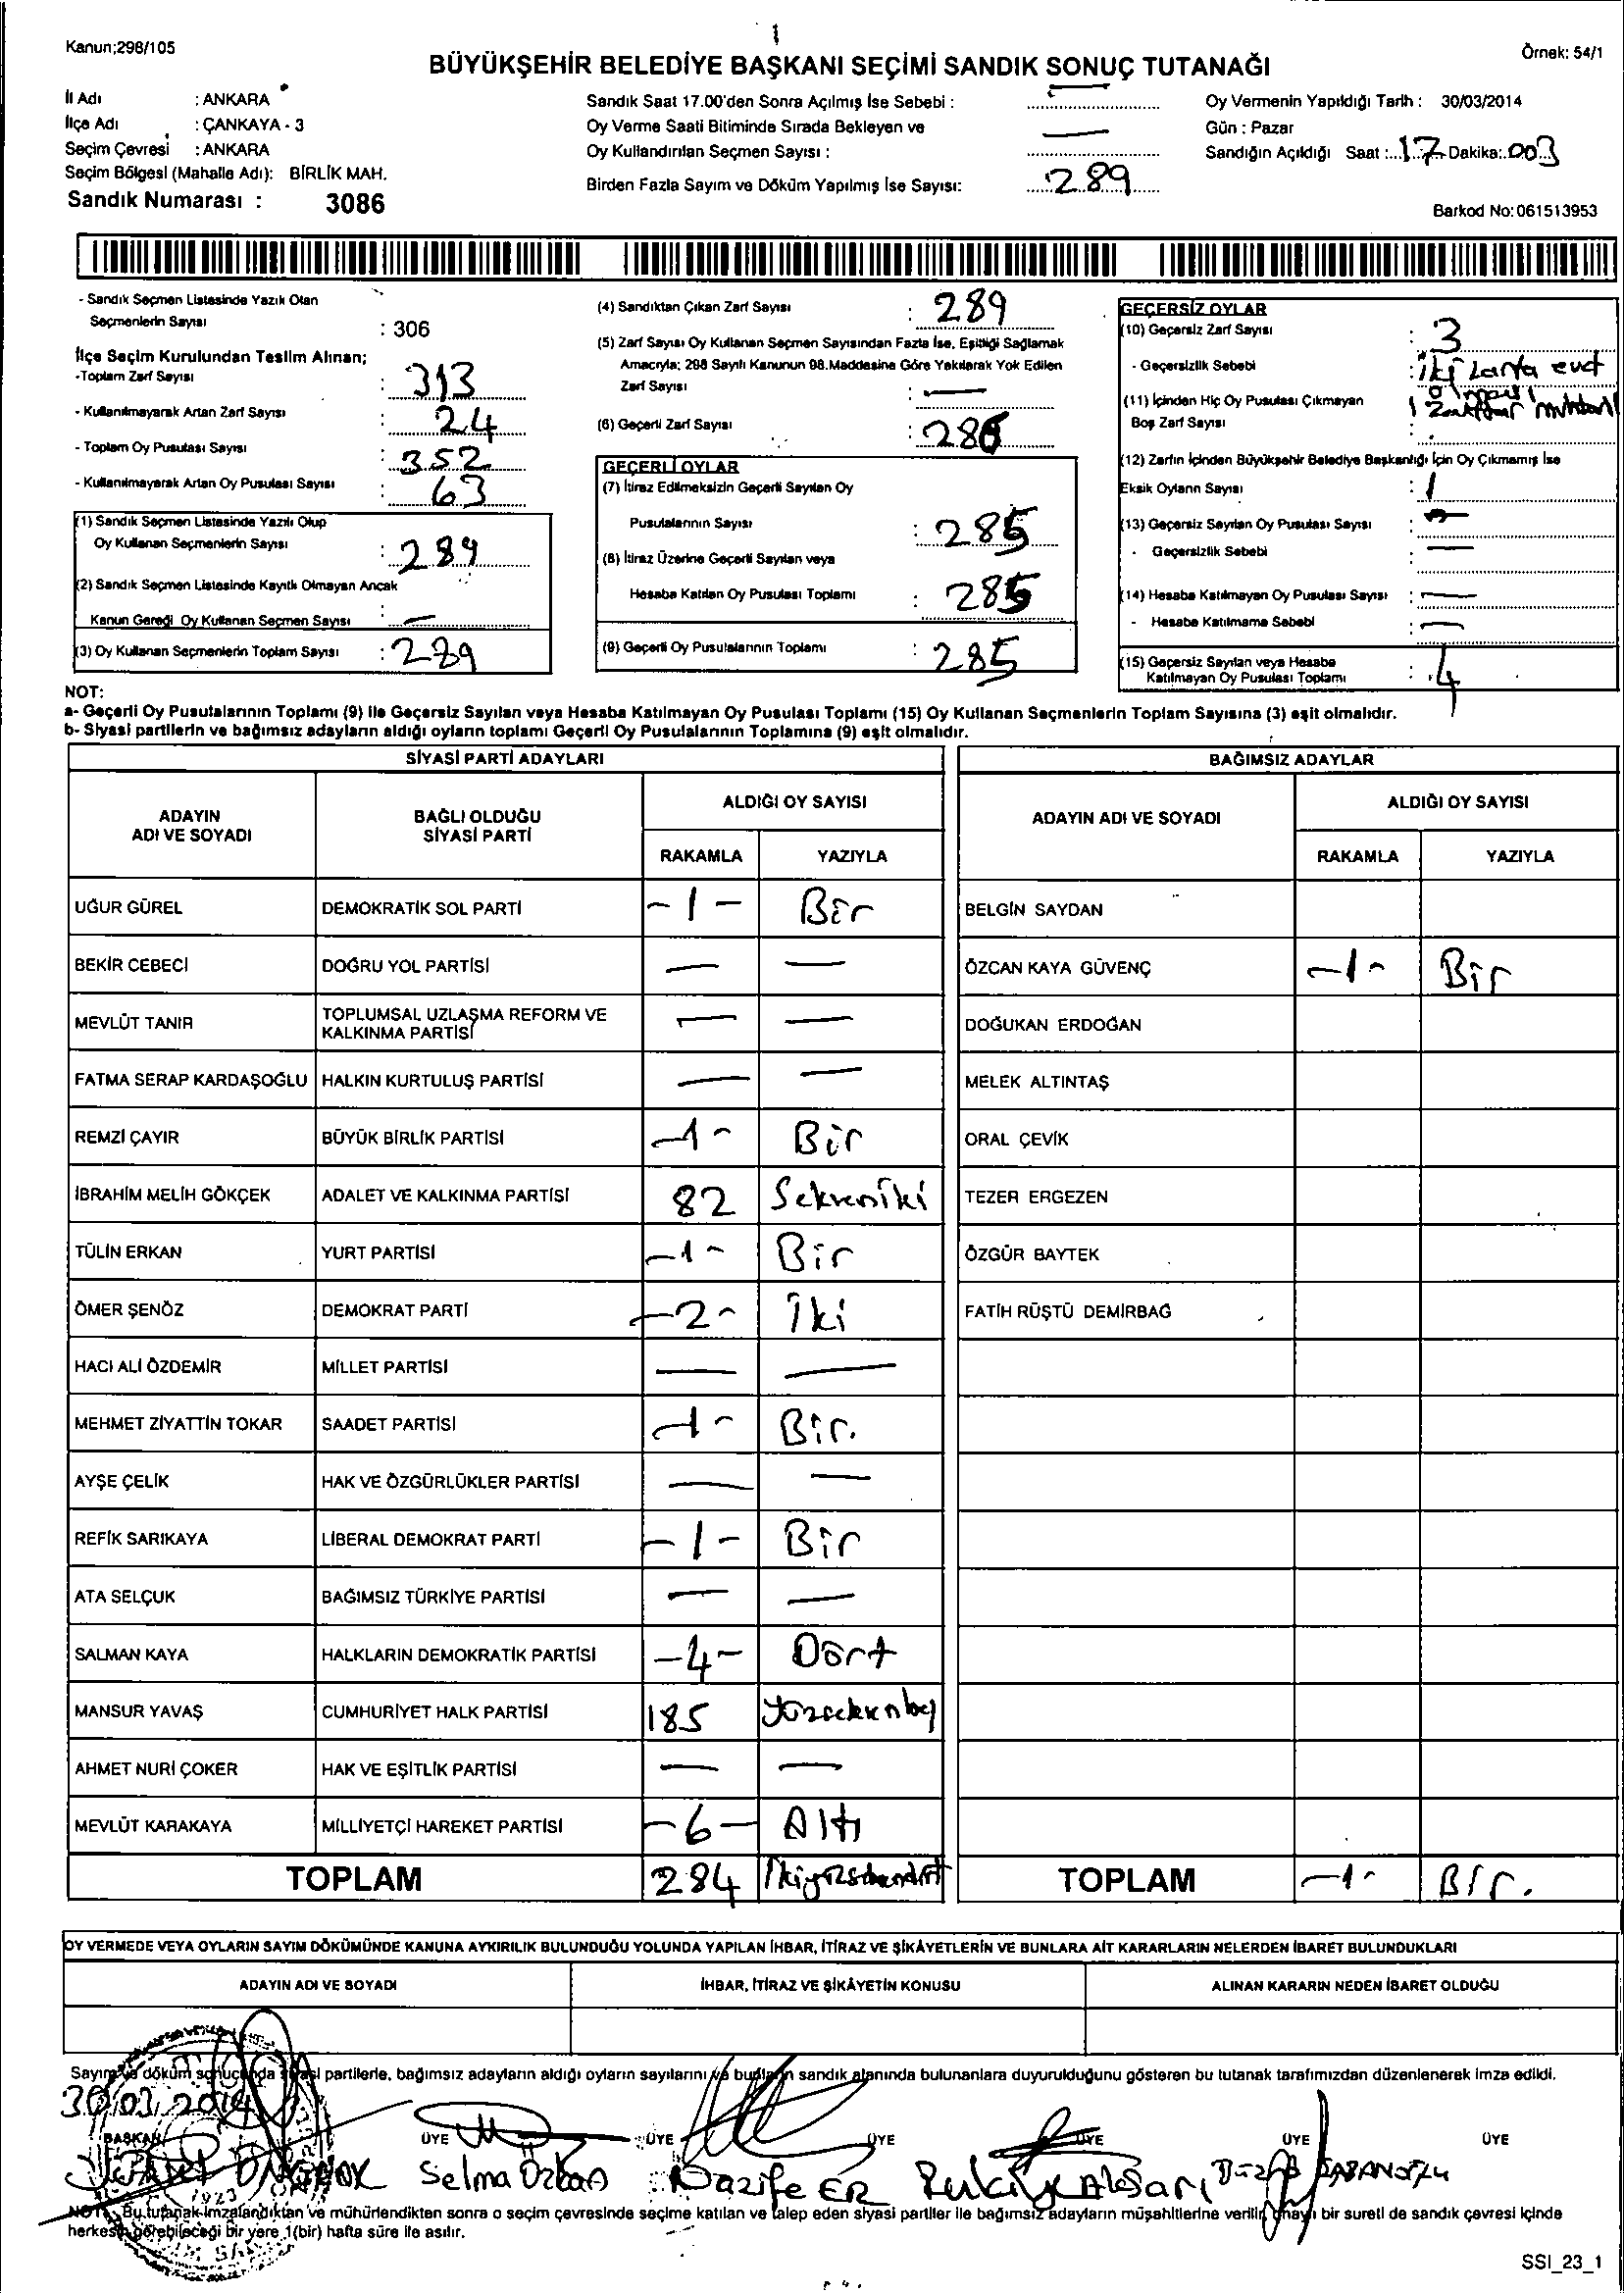 Kanun;298/105
1
BÜYÜKŞEHİR BELEDİYE BAŞKANI SEÇİMİ SANDIK SONUÇ TUTANAĞI
Örnek: 54/1
İl Adı : ANKARA
İlçe Adı : ÇANKAYA - 3
Seçim Çevresi : ANKARA
Seçim Bölgesi (Mahalle Adı): BİRLİK MAH.
Sandık Numarası : 3086
Sandık Saat 17.00'den Sonra Açılmış İse Sebebi : —
Oy Verme Saati Bitiminde Sırada Bekleyen ve
Oy Kullandırılan Seçmen Sayısı : —
Birden Fazla Sayım ve Döküm Yapılmış İse Sayısı: 289
Oy Vermenin Yapıldığı Tarih : 30/03/2014
Gün : Pazar
Sandığın Açıldığı Saat : 17 Dakika:
Barkod No:061513953
- Sandık Seçmen Listesinde Yazılı Olan
Seçmenlerin Sayısı : 306
İlçe Seçim Kurulundan Teslim Alınan;
-Toplam Zarf Sayısı : 313
- Kullanılmayarak Artan Zarf Sayısı : 24
- Toplam Oy Pusulası Sayısı : 352
- Kullanılmayarak Artan Oy Pusulası Sayısı : 63
(1) Sandık Seçmen Listesinde Yazılı Olup
Oy Kullanan Seçmenlerin Sayısı : 289
(2) Sandık Seçmen Listesinde Kayıtlı Olmayan Ancak
Kanun Gereği Oy Kullanan Seçmen Sayısı : —
(3) Oy Kullanan Seçmenlerin Toplam Sayısı : 289
(4) Sandıktan Çıkan Zarf Sayısı : 289
(5) Zarf Sayısı Oy Kullanan Seçmen Sayısından Fazla İse, Eşitliği Sağlamak
Amacıyla; 298 Sayılı Kanunun 98.Maddesine Göre Yakılarak Yok Edilen
Zarf Sayısı : —
(6) Geçerli Zarf Sayısı : 286
GEÇERLİ OYLAR
(7) İtiraz Edilmeksizin Geçerli Sayılan Oy
Pusulalarının Sayısı : 285
(8) İtiraz Üzerine Geçerli Sayılan veya
Hesaba Katılan Oy Pusulası Toplamı : 285
(9) Geçerli Oy Pusulalarının Toplamı : 285
GEÇERSİZ OYLAR
(10) Geçersiz Zarf Sayısı : 3
- Geçersizlik Sebebi : iki zarfa evet
1
(11) İçinden Hiç Oy Pusulası Çıkmayan
Boş Zarf Sayısı :
(12) Zarfın İçinden Büyükşehir Belediye Başkanlığı İçin Oy Çıkmamış İse
Eksik Oyların Sayısı : 1
(13) Geçersiz Sayılan Oy Pusulası Sayısı : —
- Geçersizlik Sebebi : —
(14) Hesaba Katılmayan Oy Pusulası Sayısı : —
- Hesaba Katılmama Sebebi : —
(15) Geçersiz Sayılan veya Hesaba
Katılmayan Oy Pusulası Toplamı : 4
NOT:
a- Geçerli Oy Pusulalarının Toplamı (9) ile Geçersiz Sayılan veya Hesaba Katılmayan Oy Pusulası Toplamı (15) Oy Kullanan Seçmenlerin Toplam Sayısına (3) eşit olmalıdır.
b- Siyasi partilerin ve bağımsız adayların aldığı oyların toplamı Geçerli Oy Pusulalarının Toplamına (9) eşit olmalıdır.
SİYASİ PARTİ ADAYLARI
ADAYIN ADI VE SOYADI BAĞLI OLDUĞU SİYASİ PARTİ ALDIĞI OY SAYISI
RAKAMLA YAZIYLA
UĞUR GÜREL DEMOKRATİK SOL PARTİ -1- Bir
BEKİR CEBECİ DOĞRU YOL PARTİSİ — —
MEVLÜT TANIR TOPLUMSAL UZLAŞMA REFORM VE KALKINMA PARTİSİ — —
FATMA SERAP KARDAŞOĞLU HALKIN KURTULUŞ PARTİSİ — —
REMZİ ÇAYIR BÜYÜK BİRLİK PARTİSİ -1- Bir
İBRAHİM MELİH GÖKÇEK ADALET VE KALKINMA PARTİSİ 82 Sekseniki
TÜLİN ERKAN YURT PARTİSİ -1- Bir
ÖMER ŞENÖZ DEMOKRAT PARTİ -2- İki
HACI ALİ ÖZDEMİR MİLLET PARTİSİ — —
MEHMET ZİYATTİN TOKAR SAADET PARTİSİ -1- Bir.
AYŞE ÇELİK HAK VE ÖZGÜRLÜKLER PARTİSİ — —
REFİK SARIKAYA LİBERAL DEMOKRAT PARTİ -1- Bir
ATA SELÇUK BAĞIMSIZ TÜRKİYE PARTİSİ — —
SALMAN KAYA HALKLARIN DEMOKRATİK PARTİSİ -4- Dört
MANSUR YAVAŞ CUMHURİYET HALK PARTİSİ 185 Yüzseksenbeş
AHMET NURİ ÇOKER HAK VE EŞİTLİK PARTİSİ — —
MEVLÜT KARAKAYA MİLLİYETÇİ HAREKET PARTİSİ -6- Altı
TOPLAM 284 İkiyüzseksendört
BAĞIMSIZ ADAYLAR
ADAYIN ADI VE SOYADI ALDIĞI OY SAYISI
RAKAMLA YAZIYLA
BELGİN SAYDAN
ÖZCAN KAYA GÜVENÇ -1- Bir
DOĞUKAN ERDOĞAN
MELEK ALTINTAŞ
ORAL ÇEVİK
TEZER ERGEZEN
ÖZGÜR BAYTEK
FATİH RÜŞTÜ DEMİRBAĞ
TOPLAM -1- Bir.
OY VERMEDE VEYA OYLARIN SAYIM DÖKÜMÜNDE KANUNA AYKIRILIK BULUNDUĞU YOLUNDA YAPILAN İHBAR, İTİRAZ VE ŞİKÂYETLERİN VE BUNLARA AİT KARARLARIN NELERDEN İBARET BULUNDUKLARI
ADAYIN ADI VE SOYADI İHBAR, İTİRAZ VE ŞİKÂYETİN KONUSU ALINAN KARARIN NEDEN İBARET OLDUĞU
Sayım ve döküm sonucunda siyasi partilerle, bağımsız adayların aldığı oyların sayılarını ve bunların sandık alanında bulunanlara duyurulduğunu gösteren bu tutanak tarafımızdan düzenlenerek imza edildi.
30/03/2014
BAŞKAN ÜYE ÜYE ÜYE ÜYE ÜYE ÜYE
Selma Özkan Nazife ER
NOT: Bu tutanak imzalandıktan ve mühürlendikten sonra o seçim çevresinde seçime katılan ve talep eden siyasi partiler ile bağımsız adayların müşahitlerine verilir, onaylı bir sureti de sandık çevresi içinde
herkesin görebileceği bir yere 1(bir) hafta süre ile asılır.
SSI_23_1